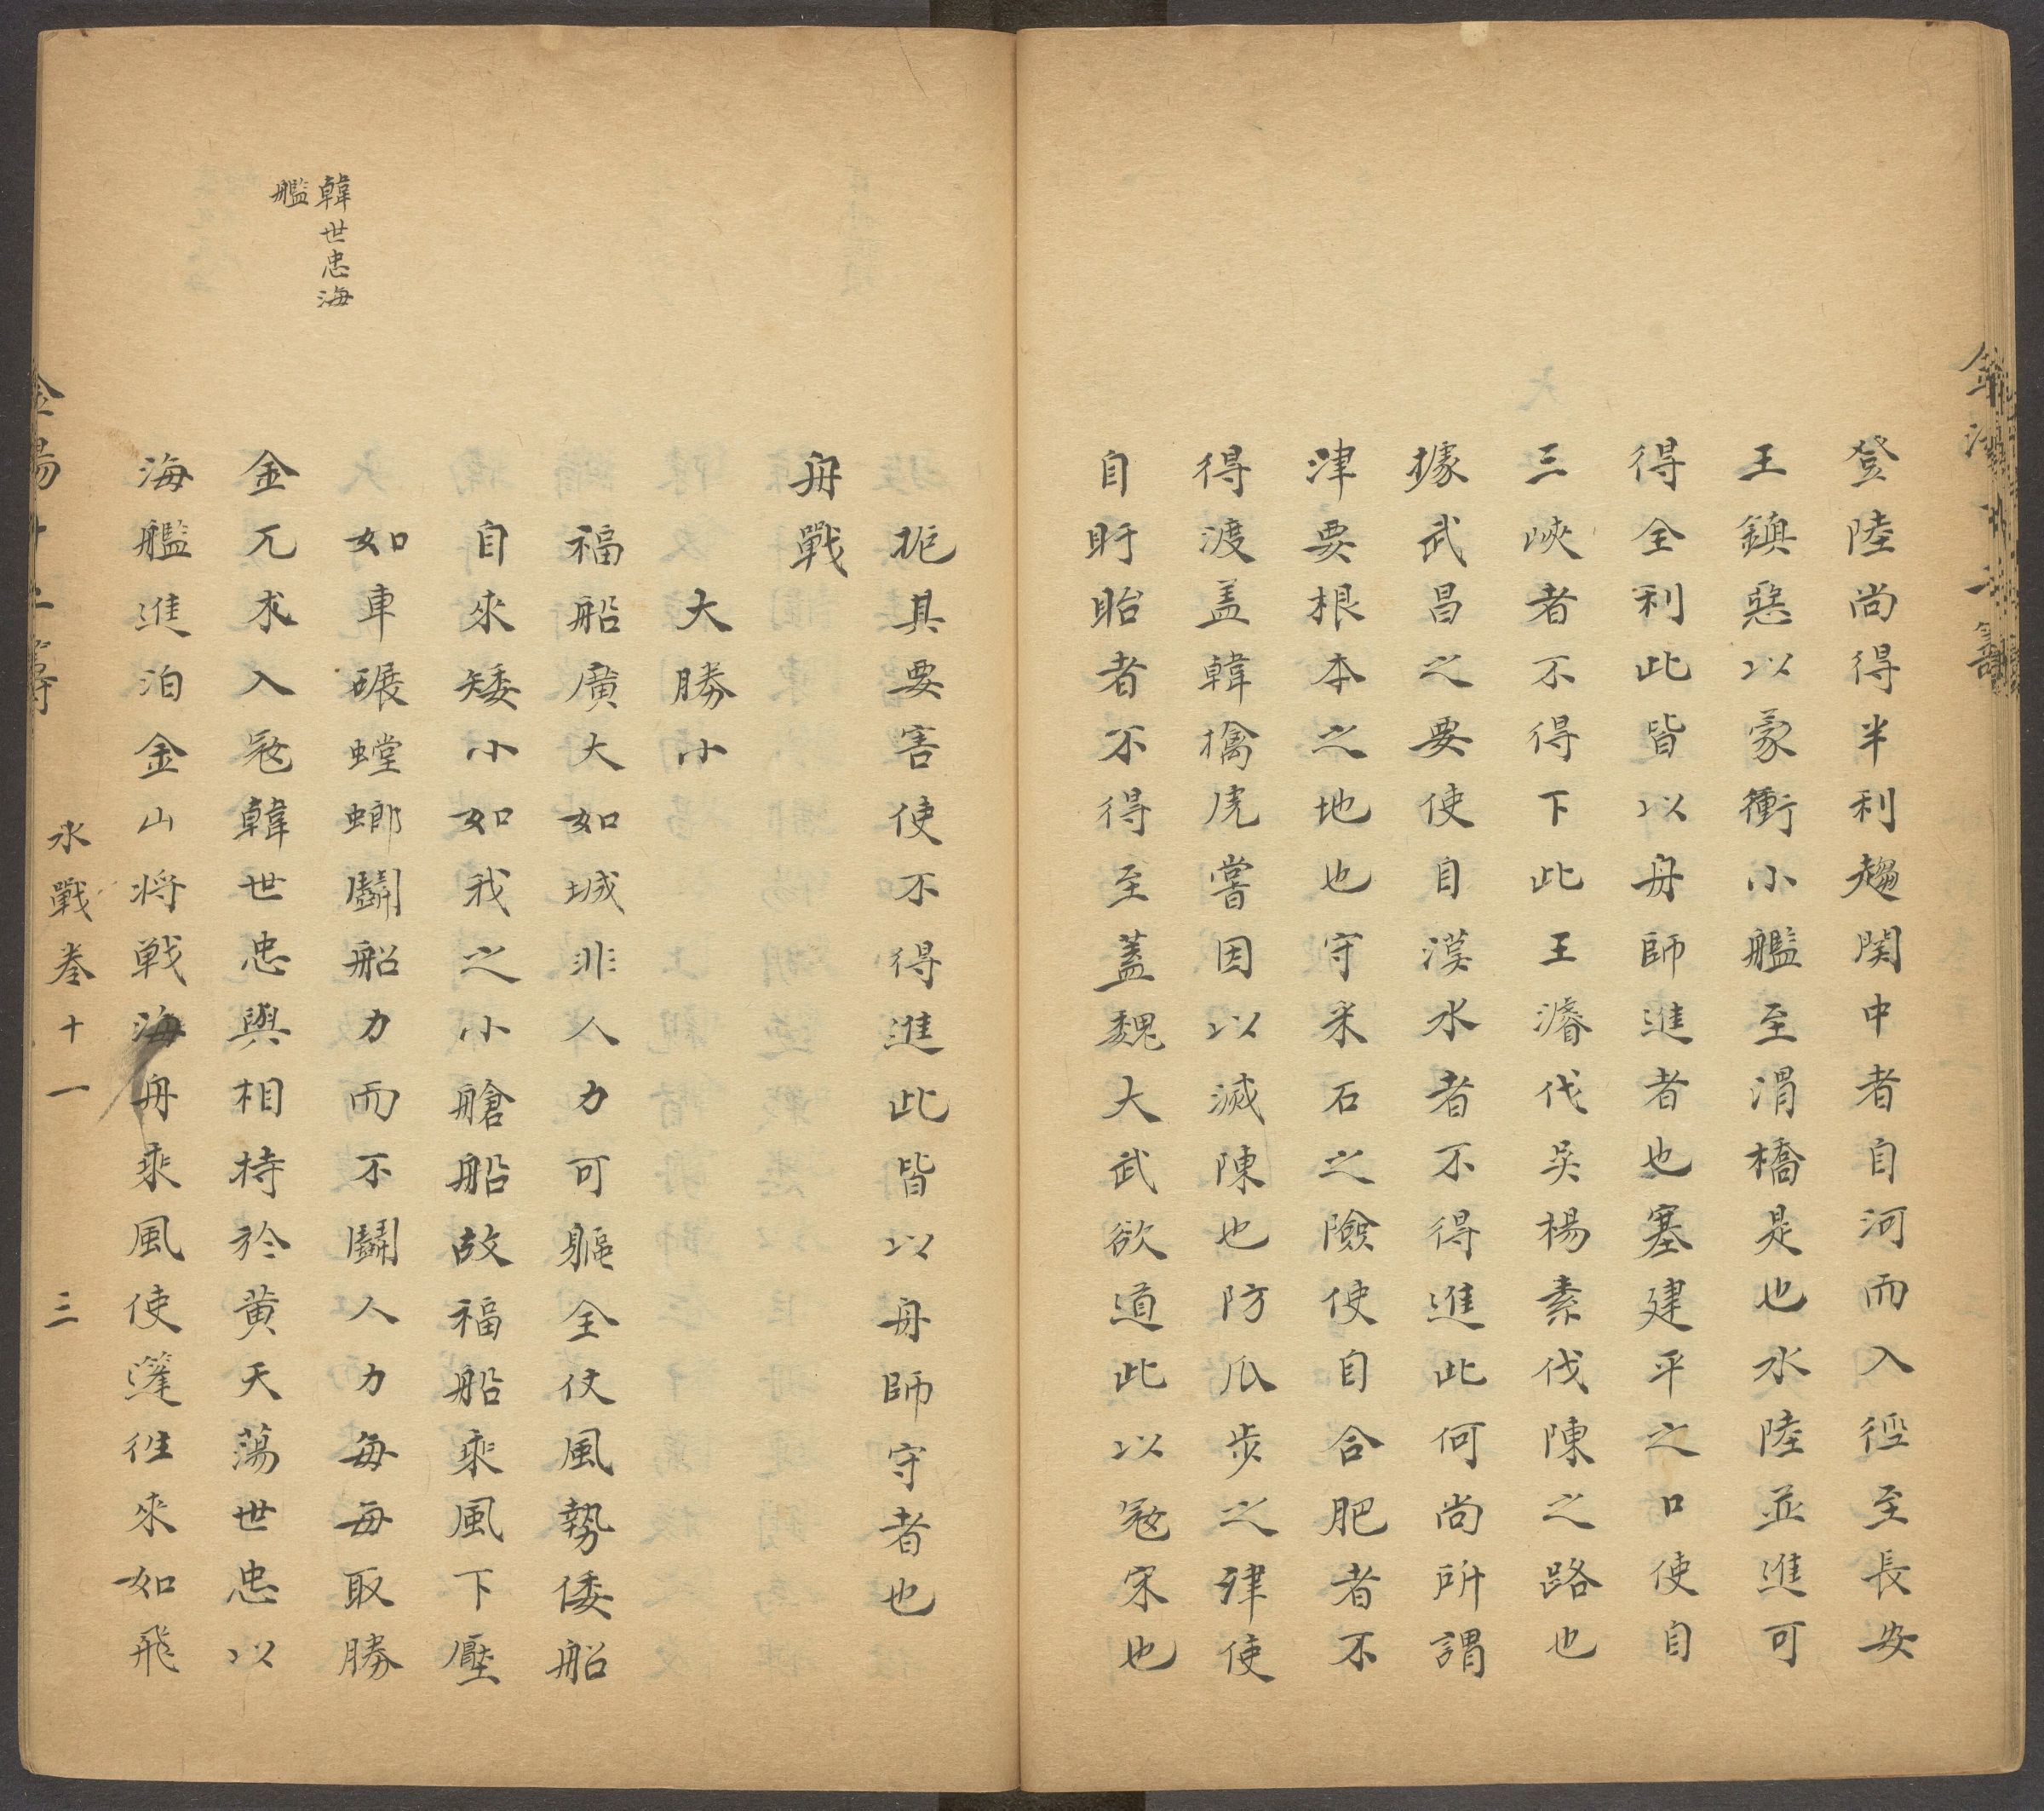 登陸尚得半利趨関中者自河而入徑至長安
王鎮惡以蒙衝小艦至渭橋是也水陸並進可
得全利此皆以舟師進者也塞建平之口使自
三峽者不得下此王濬伐吳楊素伐陳之路也
據武昌之要使自漢水者不得進此何尚所謂
津要根本之地也守采石之險使自合肥者不
得渡盖韓擒虎嘗因以滅陳也防瓜步之津使
自盱眙者不得至蓋魏大武欲道此以寇宋也
扼其要害使不得進此皆以舟師守者也
舟戰
大勝小
福船廣大如城非人力可軀全仗風勢倭船
自來矮小如我之小艙船故福船乘風下壓
如車碾螳螂鬬船力而不鬬人力每每取勝
韓世忠海
艦
金兀朮入寇韓世忠與相持於黄天蕩世忠以
海艦進泊金山将戦海舟乘風使篷徃來如飛
水戰卷十一
三